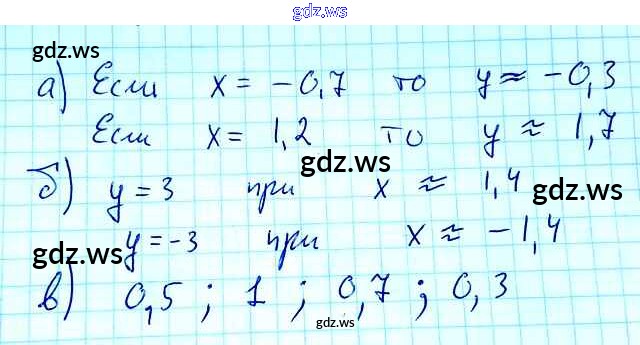 gdz.ws
gdz.ws
а) Если x = -0,7 то y ≈ -0,3
Если x = 1,2 то y ≈ 1,7
gdz.ws
gdz.ws
б) y = 3 при x ≈ 1,4
gdz.ws
y = -3 при x ≈ -1,4
gdz.ws
в) 0,5 ; 1 ; 0,7 ; 0,3
gdz.ws